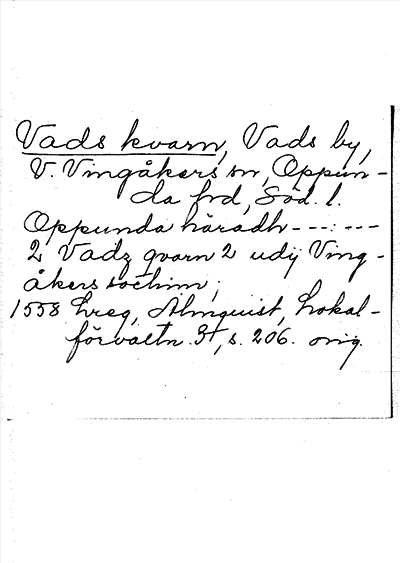 Vads kvarn, Vads by,
V. Vingåkers sn, Oppun-
da hd, Söd. l.
Oppunda häradh---:---
2 Vadz qvarn 2 udij Ving-
åkers sochnn;
1558 hreg, Almquist, Lokal-
förvaltn. 3, s. 206. orig.